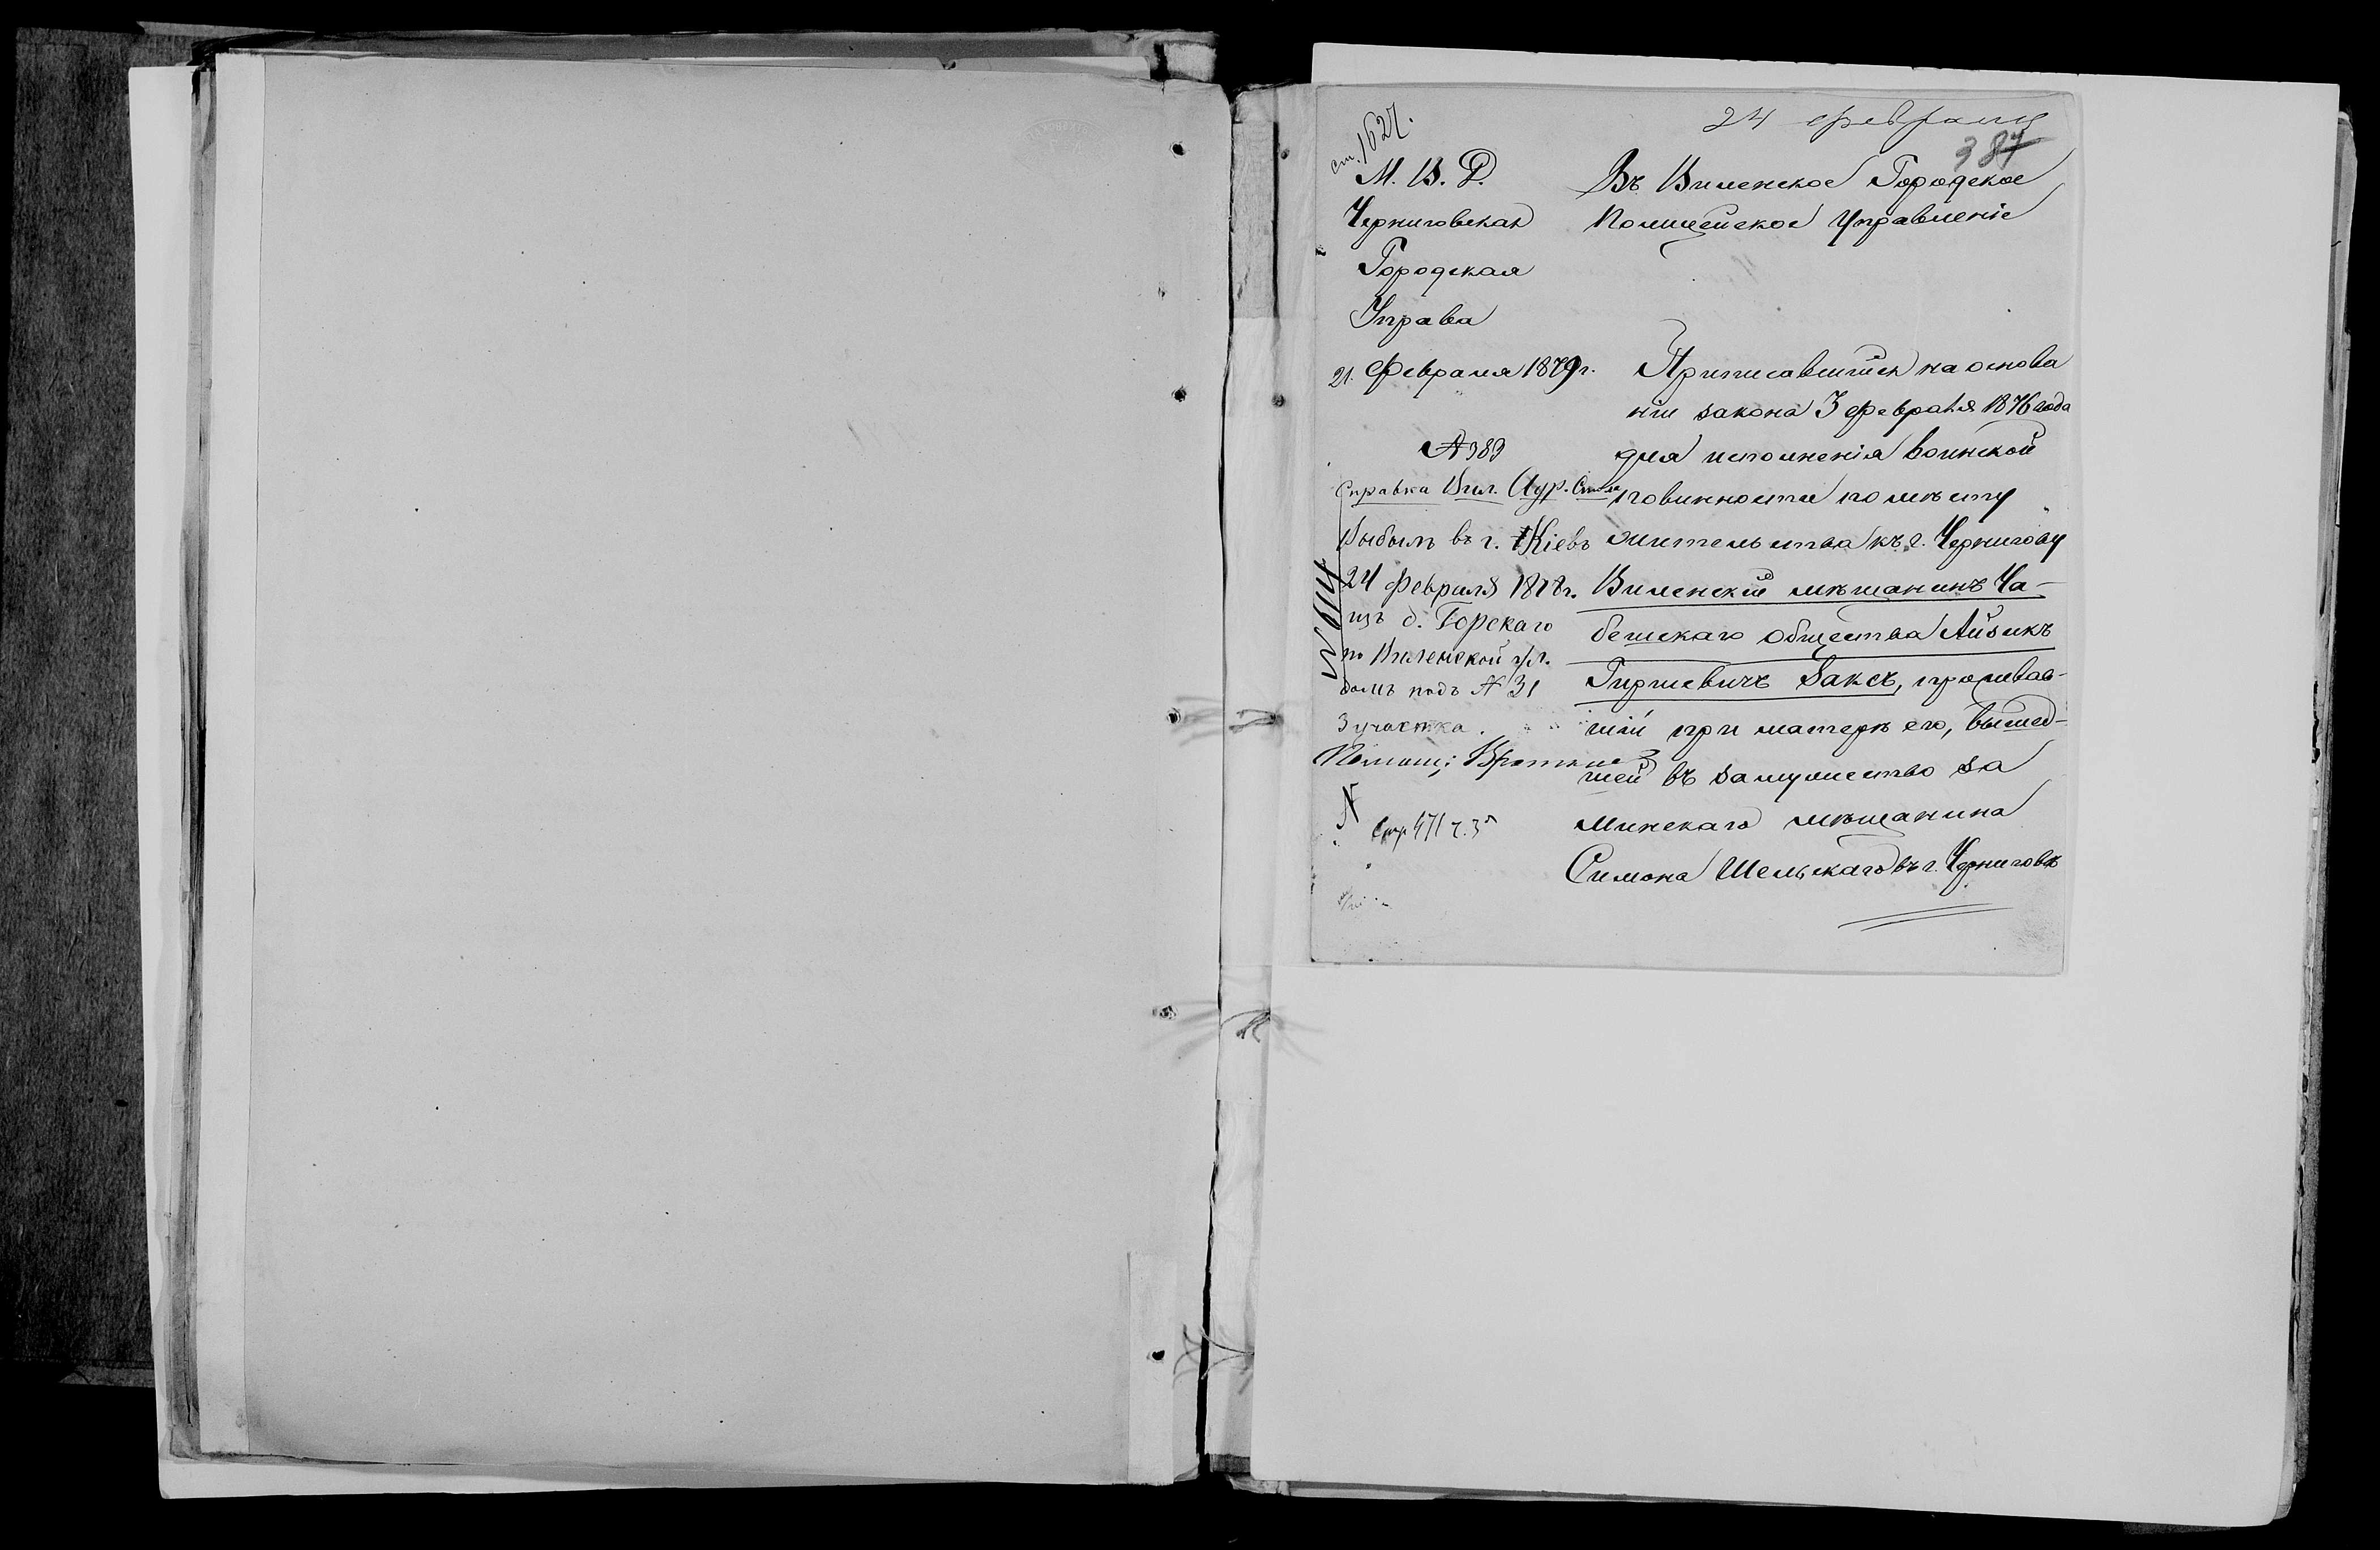 ст. 1627.
24 февраля
387
М. В. Д.
Черниговская
Городская
Управа
21 Февраля 1879 г.
№ 389
Справка Вил. Адр. Стола
Выбылъ въ г. Кіевъ
24 Февраля 1878 г.
изъ д. Горскаго
по Виленской ул.
домъ подъ № 31
3 участка.
Стр 471 ч. 3
Въ Виленское Городское
Полицейское Управленіе
Приписавшійся на основа
ніи закона 3 февраля 1876 года
для исполненія воинской
повинности по мѣсту
жительства къ г. Чернигову
Виленскій мѣщанинъ Ча-
бешскаго общества Айзикъ
Гиршевичъ Заксъ, проживав-
шій при матери его, вышед-
шей въ замужество за
Минскаго мѣщанина
Симона Шельскаго въ г. Черниговѣ